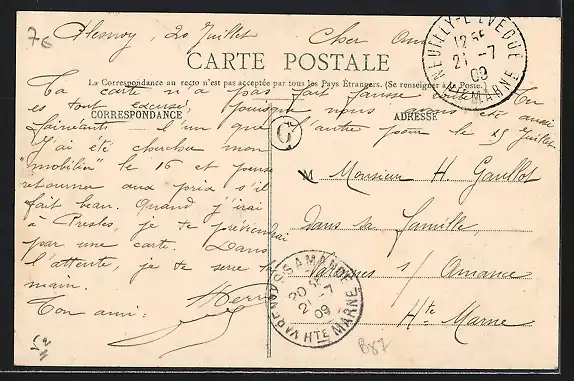 7e
Plesnoy, 20 Juillet Cher Ami
CARTE POSTALE
La Correspondance au recto n'est pas acceptée par tous les Pays Étrangers. (Se renseigner à la Poste.)
Ta carte n'a pas fait fausse route. Tu
es tout excusé, puisque nous avons été aussi
CORRESPONDANCE
ADRESSE
fainéants l'un que l'autre pour le 15 Juillet.
J'ai été chercher mon
"mobilier" le 16 et pense
retourner aux prix s'il
fait beau. Quand j'irai
à Presles, je te préviendrai
par une carte. Dans
l'attente, je te serre la
main.
Ton ami:
G
M Monsieur H Gaullot
Dans sa famille
Varennes s/ Amance
Hte Marne
NEUILLY-L'EVEQUE
12
21 -7
09
HTE MARNE
VARENNES S AMANCE
20
21 -7
09
HTE MARNE
B87